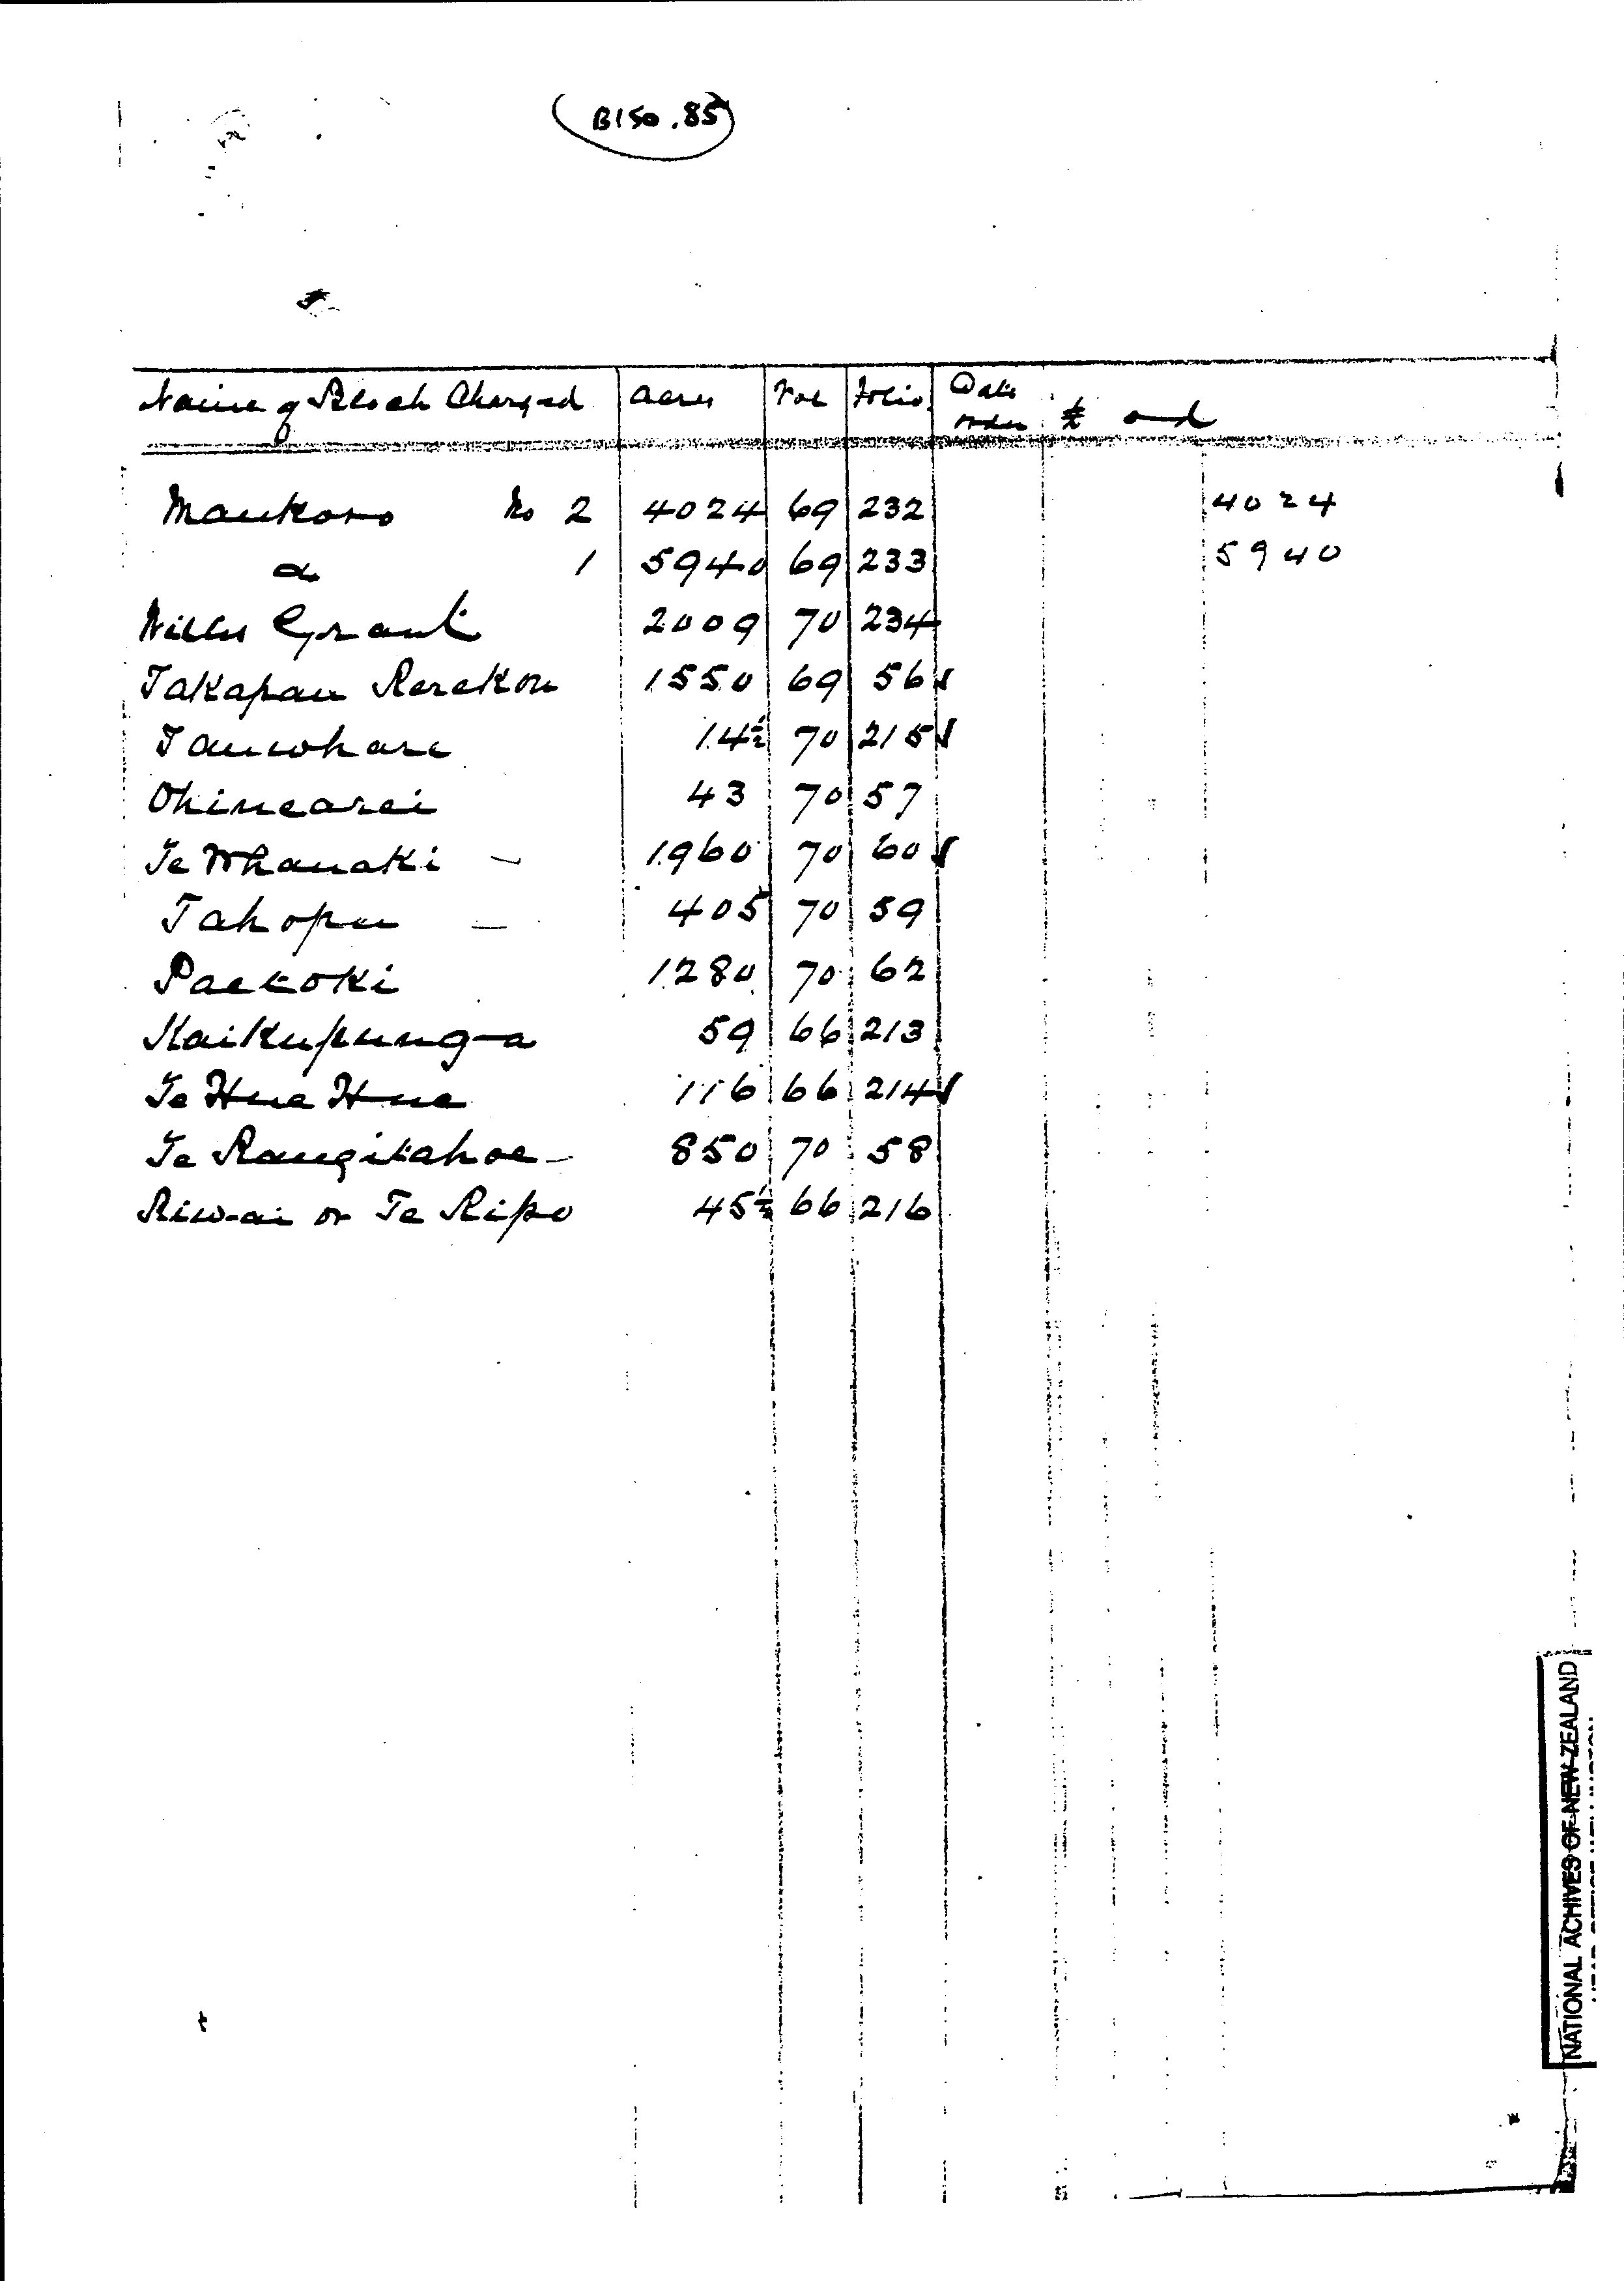 B150.85
Name of Block Charged Acres Vol Folio Date
order £ s d
Maukoro No 2 4024 69 232 4024
do 1 5940 69 233 5940
Willis Grant 2009 70 234
Takapau Rerekou 1550 69 56 ✓
Tauwhare 14½ 70 215 ✓
Ohinearei 43 70 57
Te Whanaki - 1960 70 60 ✓
Tahopu - 405 70 59
Paetoki 1280 70 62
Kaikupunga 59 66 213
Te Hue Hue 116 66 214 ✓
Te Rangitahoe - 850 70 58
Riwai or Te Ripo 45½ 66 216
NATIONAL ACHIVES OF NEW ZEALAND